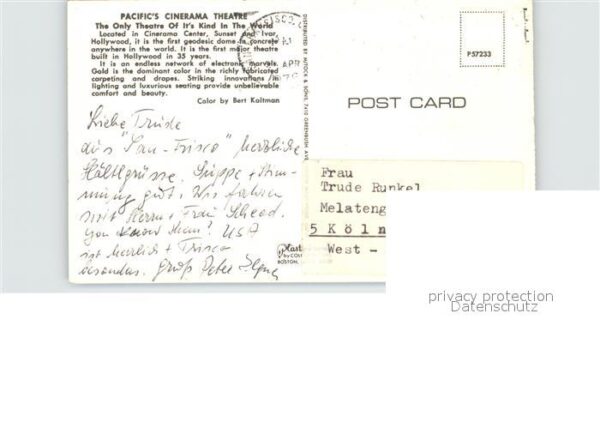 PACIFIC'S CINERAMA THEATRE
The Only Theatre Of It's Kind In The World
Located in Cinerama Center, Sunset and Ivar,
Hollywood, it is the first geodesic dome in concrete
anywhere in the world. It is the first major theatre
built in Hollywood in 35 years.
It is an endless network of electronic marvels.
Gold is the dominant color in the richly fabricated
carpeting and drapes. Striking innovations in
lighting and luxurious seating provide unbelievable
comfort and beauty.
Color by Bert Kaitman
APR
P57233
POST CARD
Liebe Trude
aus "San-Frisco" herzliche
Gruppe + Stim-
mung gut. Wir fahren
mit Herrn + Frau
You know them? USA
ist herrlich + Frisco
besonders. Gruß Peter
Frau
Trude Runkel
Melateng
5 Köln
West -
Plast
by COL
BOSTON,
privacy protection
Datenschutz